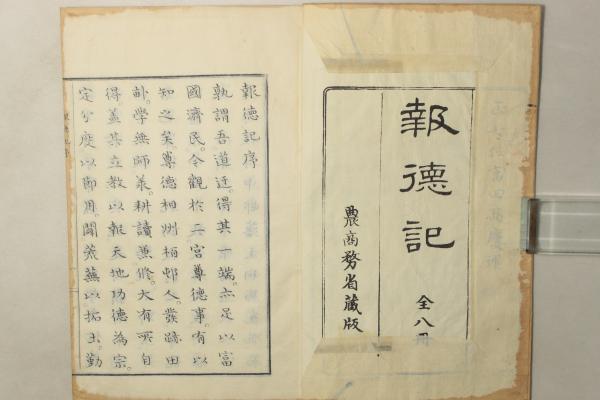 報德記
全八冊
農商務省藏版
報德記序
孰謂吾道迂得其一端亦足以富
國濟民今觀於二宮尊德事有以
知之矣尊德相州栢邨人發跡田
畝學無師承耕讀兼修大有所自
得蓋其立教以報天地功德為宗
定分度以節用闢荒蕪以拓土勤